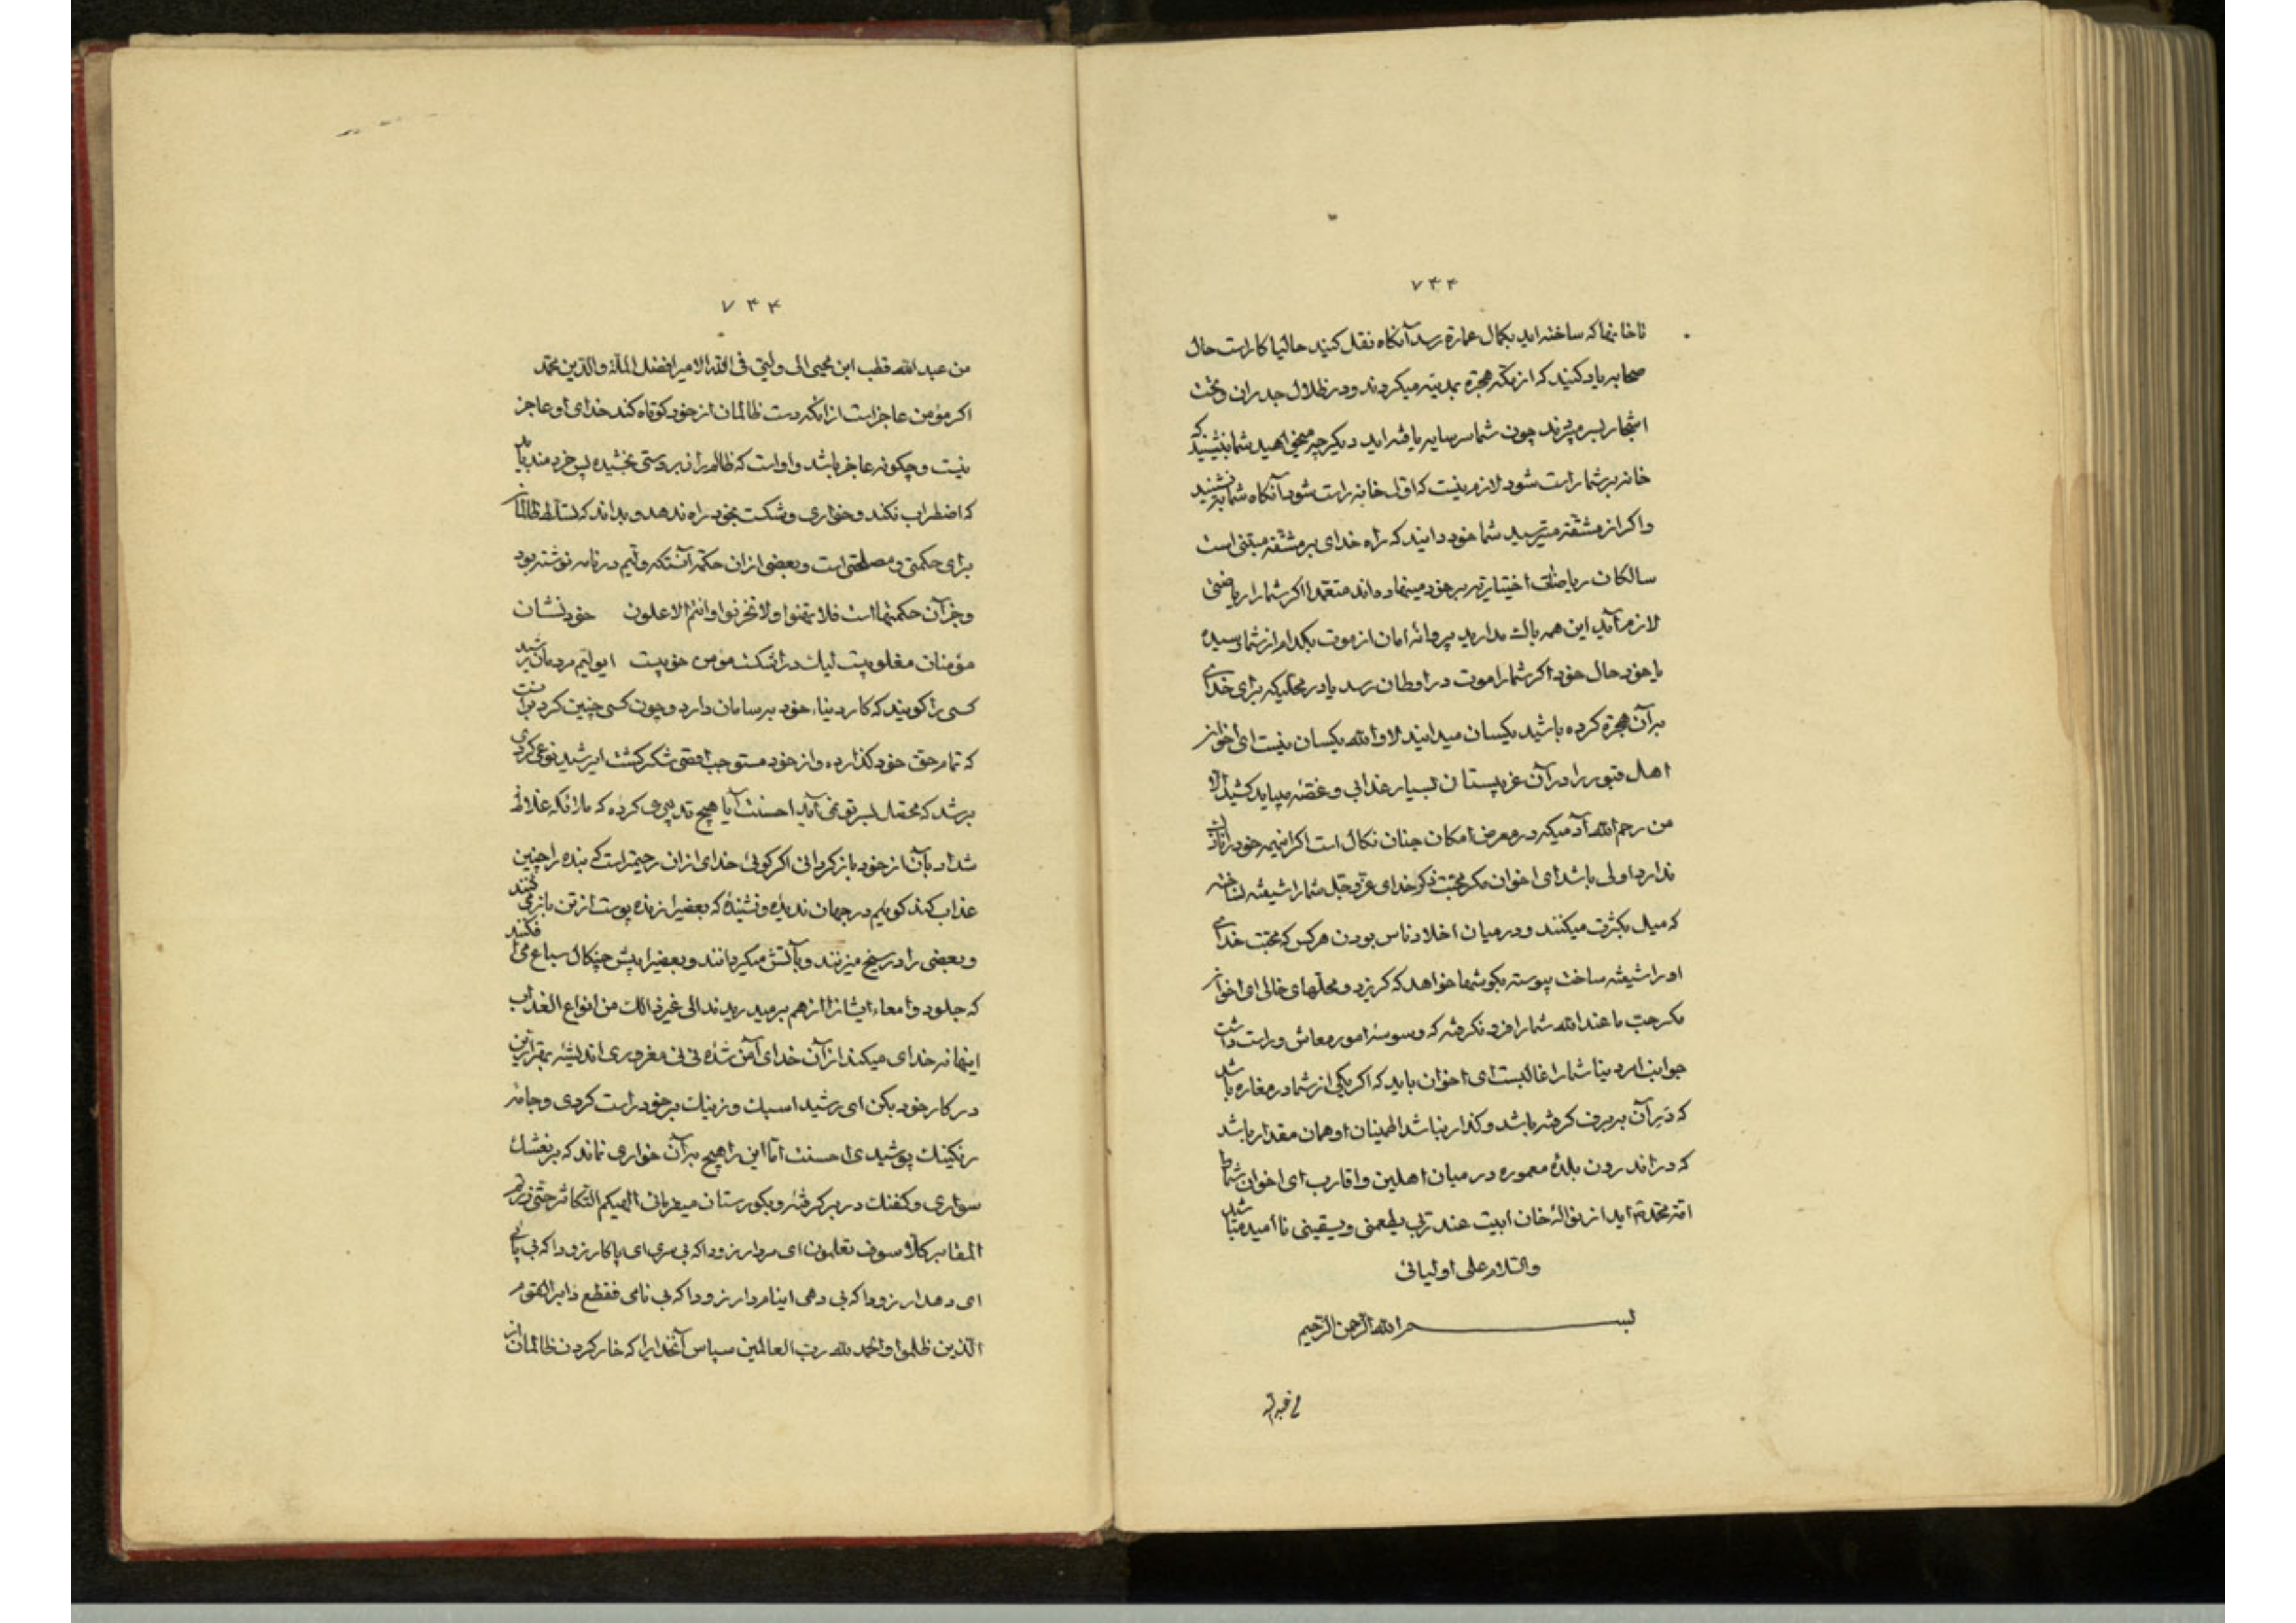 ۷۴۳
تا خانها که ساخته اید بکمال عمارة رسد آنکاه نقل کنید حالیا کار است حال
صحابه یاد کنید که از مکه هجرة بمدینه میکردند و در ظلال جدران و تحت
اشجار بسر میبردند چون شما سرسایه یافته اید دیکر چه میخواهید شما بنشینید که
خانه بر شما راست شود لازم نیست که اول خانه راست شود آنکاه شما بنشینید
و اکر از مشقة میترسید شما خود دانید که راه خدای بر مشقة مبتنی است
سالکان ریاضتی اختیاریه بر خود مینهاده اند متعمدا اکر شما را ریاضتی
لازم آید این همه باک مدارید پروانه امان از موت بکدام از شما رسیده
با خود حال خود اکر شما را موت در اوطان رسد یا در محلیکه برای خدای
بر آن هجرة کرده باشید یکسان میدانید لا والله یکسان نیست ای اخوان
اهل قبور را در آن غریبستان بسیار عذابی و غصه میباید کشید الا
من رحم الله آدمیکه در معرض امکان چنان نکال است اکر اینهمه خود را نازک
ندارد اولی باشد ای اخوان مکر محبت ذکر خدای عز و جل شما را شیفته نساخته
که میل بکثرت میکنند و در میان اخلاد ناس بودن هر کس که محبت خدای
او را شیفته ساخت پیوسته بکوشها خواهد که کریزد و محلهای خالی ای اخوان
مکر حب ما عند الله شما را فرو نکرفته که وسوسه امور معاش و راست داشت
جوانب امر دنیا شما را غالبست ای اخوان باید که اکر یکی از شما در مغاره باشد
که در آن بر برف کرفته باشد و کذار نباشد اطمینان او همان مقدار باشد
که در اندرون بلده معموره در میان اهلین و اقارب ای اخوان شما
امة محمدیه اید از نوالهٔ خان ابیت عند ربی یطعمنی و یسقینی ناامید مباشید
والسلام علی اولیائی
بسم الله الرحمن الرحیم
من عبد الله
۷۴۴
من عبد الله قطب ابن محیی الی ولیی فی الله الامیر افضل الملة والدین محمد
اکر مؤمن عاجز است از آنکه دست ظالمان از خود کوتاه کند خدای او عاجز
نیست و چکونه عاجز باشد و او است که ظالم را زبردستی بخشیده پس خردمند باید
که اضطراب نکند و خواری و شکست بخود راه ندهد و بداند که تسلط ظالمان
برای حکمتی و مصلحتی است و بعضی از آن حکمة آنستکه ولیم در نامه نوشته بود
و جز آن حکمتها است فلا تهنوا ولا تحزنوا وانتم الاعلون خود نشان
مؤمنان مغلوبیت لیک در اشکست مؤمن خوبیست ای ولیم مردمان رشید
کسی را کویند که کار دنیاء خود بسامان دارد و چون کسی چنین کرد برآنست
که تمام حق خود کذارده و از خود مستوجب اقصی شکر کشت ای رشید نوعی کردی
برشد که محصل بسر تو نمی آید احسنت آیا هیچ تدبیری کرده که ملائکه غلاظ
شداد بآن از خود باز کردانی اکر کوئی خدای از آن رحیمتر است که بنده را چنین
عذاب کند کویم در جهان ندیده و نشنیده که بعضیرا زنده پوست از تن باز میکنند
و بعضی را در سیخ میزنند و بآتش میکردانند و بعضیرا پیش چنکال سباع می افکنند
که جلود و امعاء ایشانرا از هم بر میدرد الی غیر ذالک من انواع العذاب
اینها نه خدای میکند از آن خدای آمن شده نی نی مغروری اندیشهٔ بهتر ازین
در کار خود بکن ای رشید اسبک و زینک بر خود راست کردی و جامه
رنکینک پوشیدی احسنت اما این را هیچ بر آن خواری نماند که بر نعشک
سواری و کفنک در بر کرفته و بکورستان میبرمانی الهیکم التکاثر حتی زرتم
المقابر کلا سوف تعلمون ای سردار زودا که بی سری ای پاکار زودا که بی پائی
ای دهدار زودا که بی دهی ای نامدار زودا که بی نامی فقطع دابر القوم
الذین ظلموا والحمد لله رب العالمین سپاس آنخدایرا که خار کردن ظالمان از